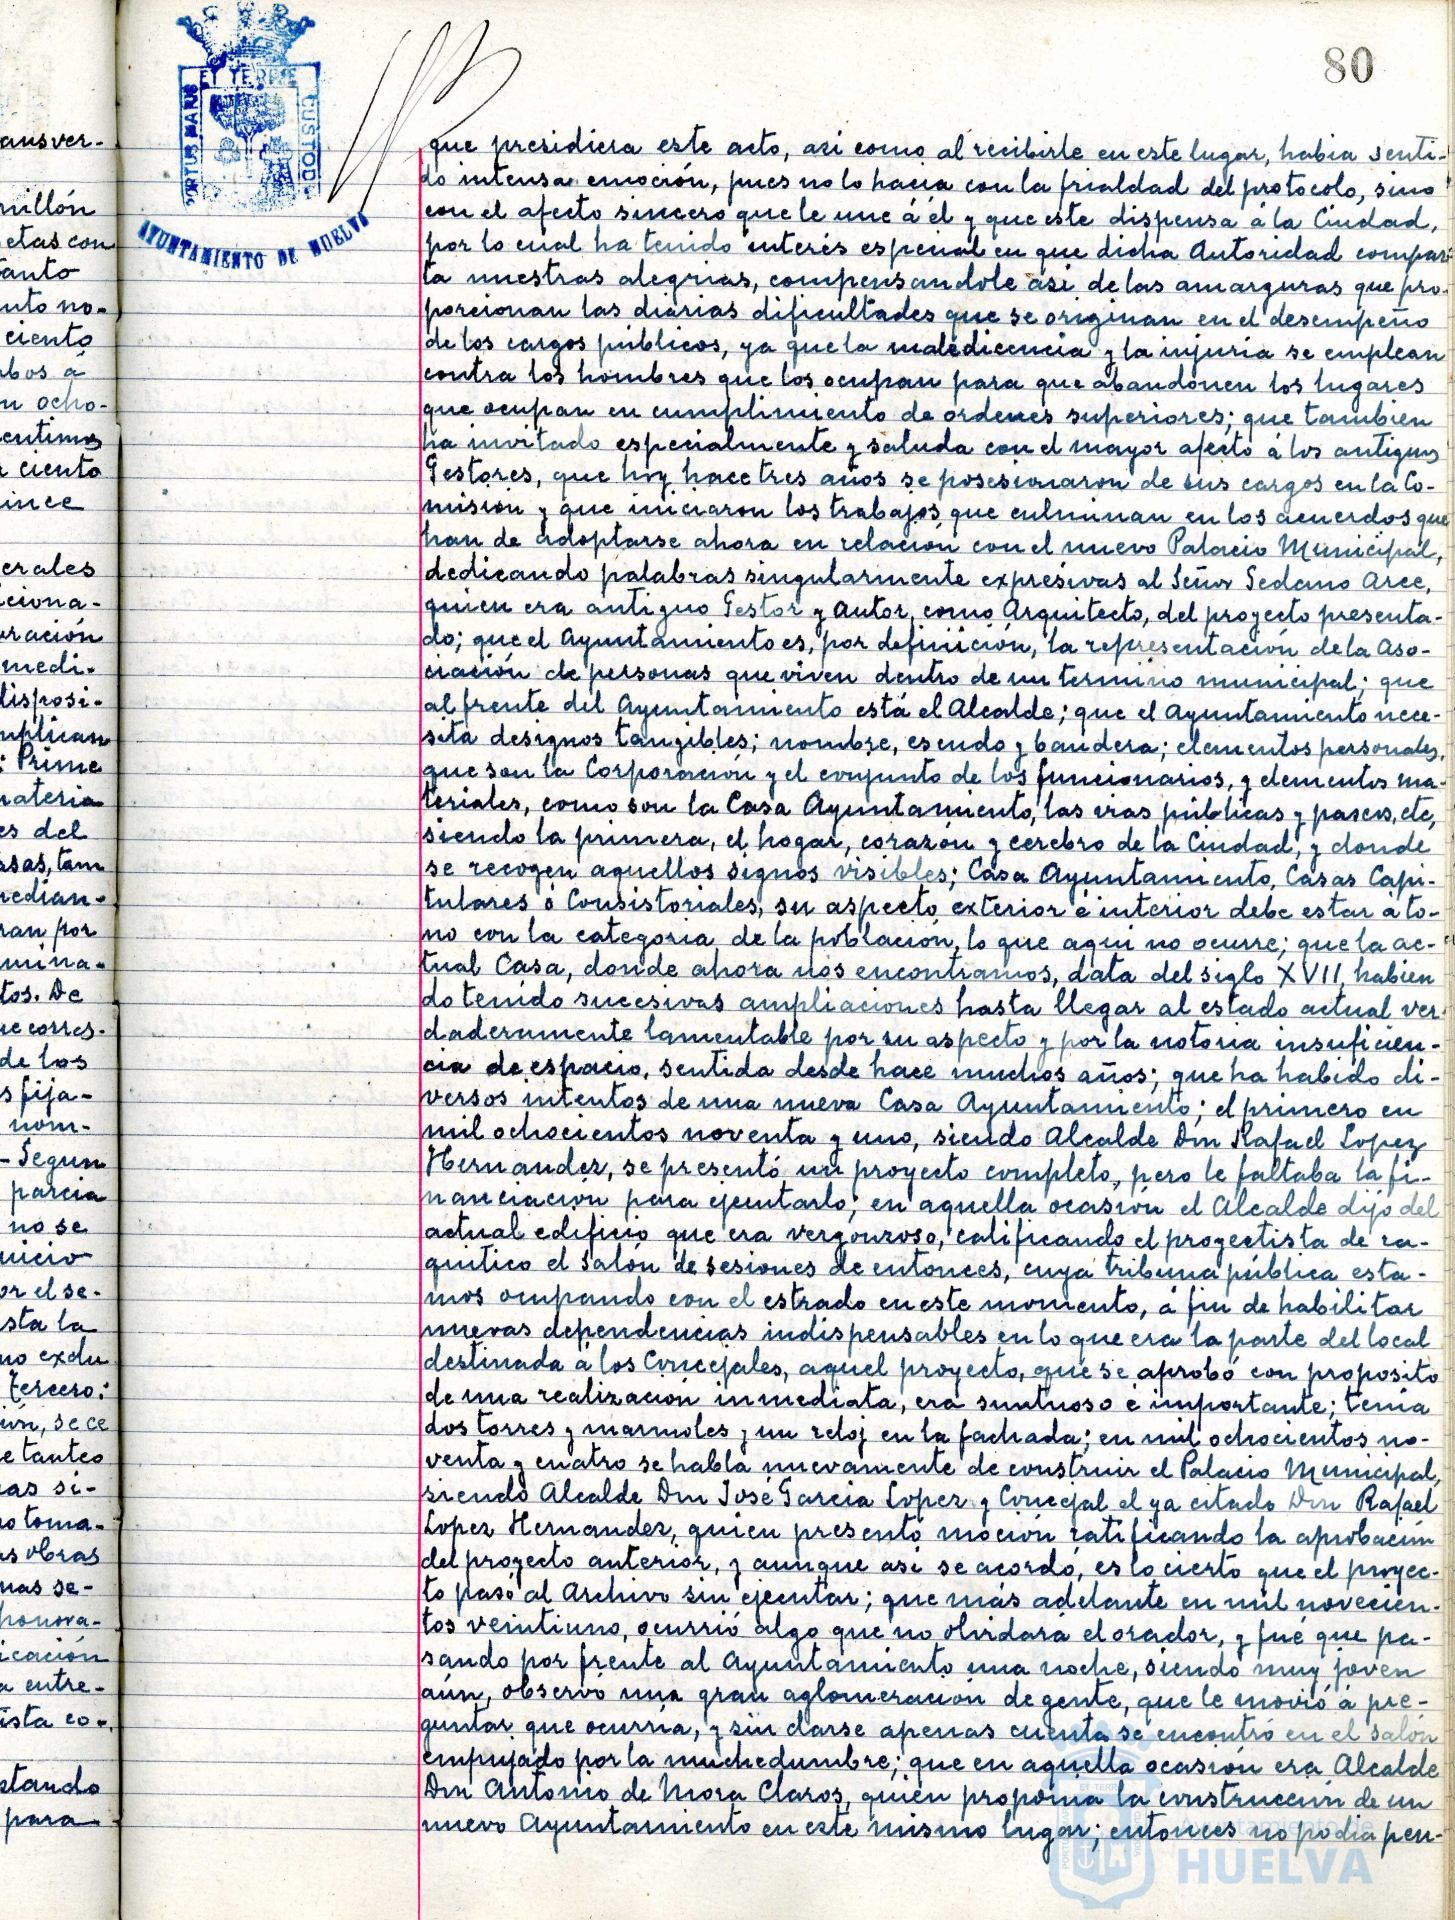 80
ET TERRE
PORTUS MARIS
CUSTODI
AYUNTAMIENTO DE HUELVA
que presidiera este acto, asi como al recibirle en este lugar, habia senti-
do intensa emoción, pues no lo hacia con la frialdad del protocolo, sino
con el afecto sincero que le une á él y que este dispensa á la Ciudad,
por lo cual ha tenido interés especial en que dicha Autoridad compar-
ta nuestras alegrias, compensandole asi de las amarguras que pro-
porcionan las diarias dificultades que se originan en el desempeño
de los cargos públicos, ya que la maledicencia y la injuria se emplean
contra los hombres que los ocupan para que abandonen los lugares
que ocupan en cumplimiento de ordenes superiores; que tambien
ha invitado especialmente y saluda con el mayor afecto á los antiguos
Gestores, que hoy hace tres años se posesionaron de sus cargos en la Co-
misión y que iniciaron los trabajos que culminan en los acuerdos que
han de adoptarse ahora en relación con el nuevo Palacio Municipal,
dedicando palabras singularmente expresivas al Señor Sedano Arce,
quien era antiguo Gestor y Autor, como Arquitecto, del proyecto presenta-
do; que el Ayuntamiento es, por definición, la representación de la Aso-
ciación de personas que viven dentro de un termino municipal; que
al frente del Ayuntamiento está el Alcalde; que el Ayuntamiento nece-
sita designos tangibles; nombre, escudo y bandera; elementos personales,
que son la Corporación y el conjunto de los funcionarios, y elementos ma-
teriales, como son la Casa Ayuntamiento, las vias públicas y paseos, etc,
siendo la primera, el hogar, corazón y cerebro de la Ciudad, y donde
se recogen aquellos signos visibles; Casa Ayuntamiento, Casas Capi-
tulares ó Consistoriales, su aspecto exterior é interior debe estar á to-
no con la categoria de la población, lo que aqui no ocurre; que la ac-
tual Casa, donde ahora nos encontramos, data del siglo XVII, habien
do tenido sucesivas ampliaciones hasta llegar al estado actual ver-
daderamente lamentable por su aspecto y por la notoria insuficien-
cia de espacio, sentida desde hace muchos años; que ha habido di-
versos intentos de una nueva Casa Ayuntamiento; el primero en
mil ochocientos noventa y uno, siendo Alcalde Don Rafael Lopez
Hernandez, se presentó un proyecto completo, pero le faltaba la fi-
nanciación para ejecutarlo; en aquella ocasión el Alcalde dijo del
actual edificio que era vergonzoso, calificando el proyectista de ra-
quitico el Salón de sesiones de entonces, cuya tribuna pública esta-
mos ocupando con el estrado en este momento, á fin de habilitar
nuevas dependencias indispensables en lo que era la parte del local
destinada á los Concejales, aquel proyecto, que se aprobó con proposito
de una realización inmediata, era suntuoso e importante; tenia
dos torres y marmoles y un reloj en la fachada; en mil ochocientos no-
venta y cuatro se habla nuevamente de construir el Palacio Municipal,
siendo Alcalde Don José Garcia Lopez y Concejal el ya citado Don Rafael
Lopez Hernandez, quien presentó moción ratificando la aprobación
del proyecto anterior, y aunque asi se acordó, es lo cierto que el proyec-
to pasó al Archivo sin ejecutar; que más adelante en mil novecien-
tos veintiuno, ocurrió algo que no olvidará el orador, y fué que pa-
sando por frente al Ayuntamiento una noche, siendo muy joven
aún, observó una gran aglomeración de gente, que le movió á pre-
guntar que ocurria, y sin darse apenas cuenta se encontró en el Salón
empujado por la muchedumbre; que en aquella ocasión era Alcalde
Don Antonio de Mora Claros, quien proponia la construcción de un
nuevo Ayuntamiento en este mismo lugar; entonces no podia pen-
Ayuntamiento de
HUELVA